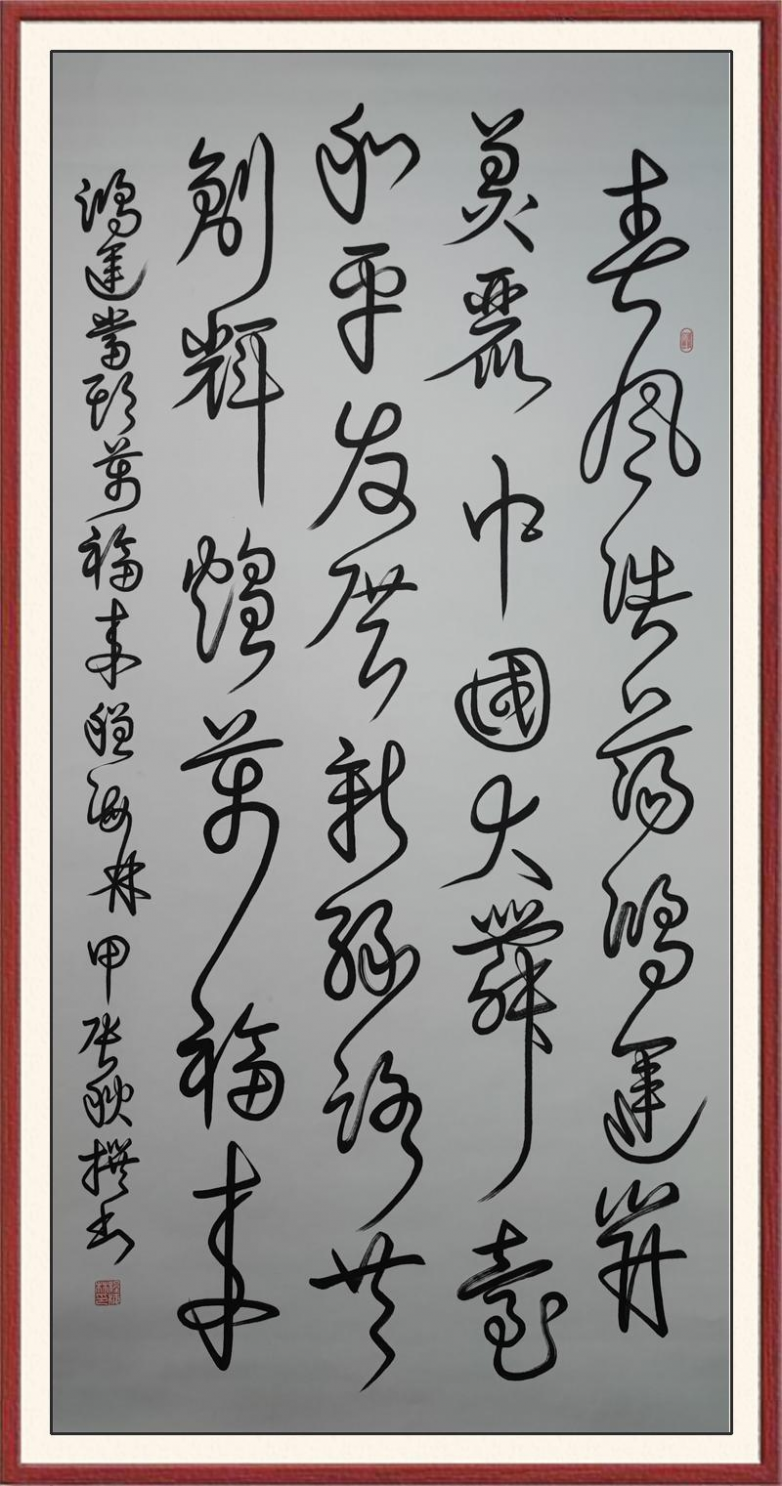 春風浩蕩鴻運開
美麗中國大舞臺
和平發展新絲路共
創輝煌萬福來
鴻運當頭萬福來 程海林 甲辰秋撰書